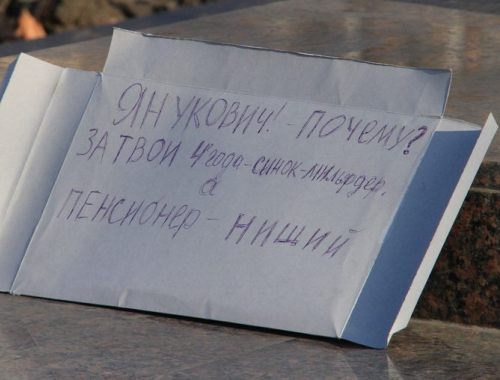 ЯНУКОВИЧ! - ПОЧЕМУ?
ЗА ТВОИ 4 года - сынок - мильярдер,
а
ПЕНСИОНЕР - НИЩИЙ